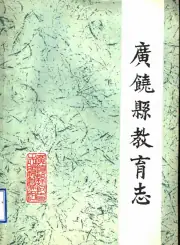 廣饒縣教育志